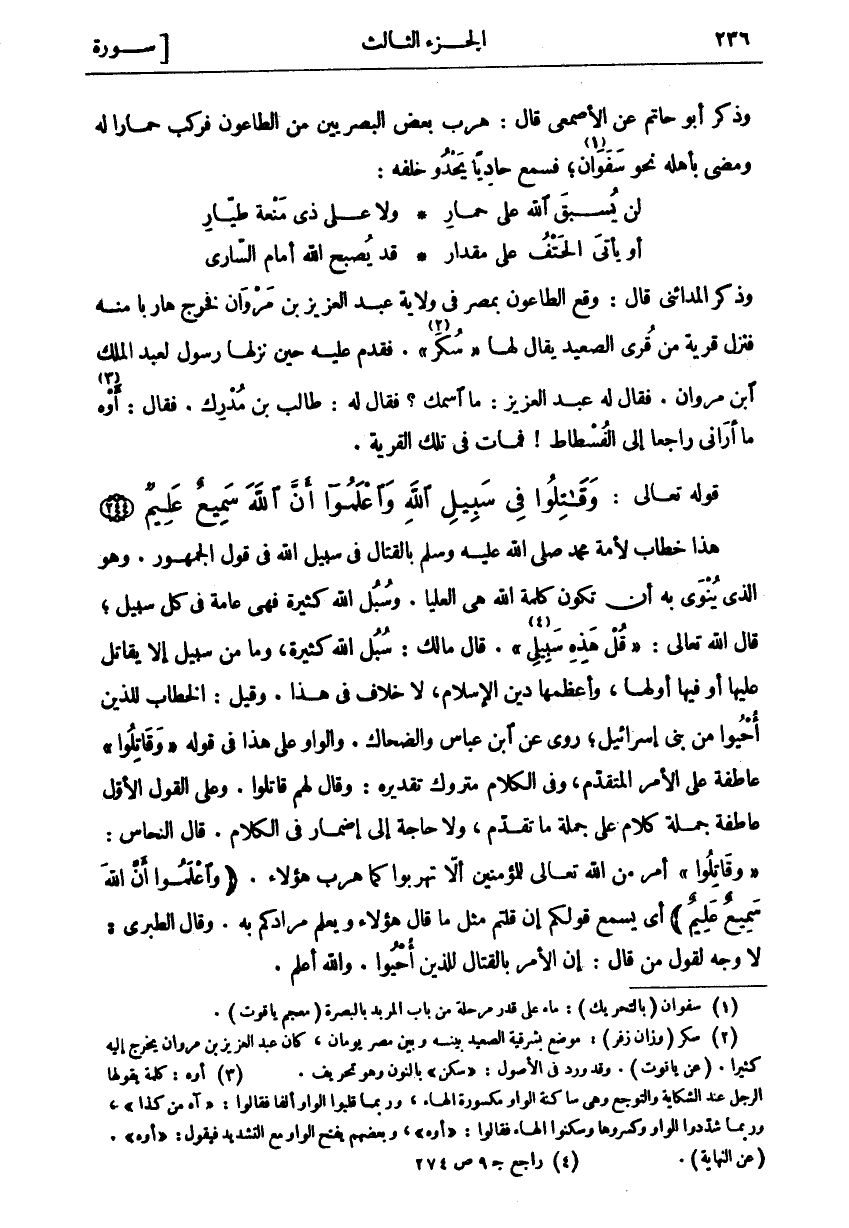 ٢٣٦ الجـــزء الثالث [ ســـورة
وذكر أبو حاتم عن الأصمعى قال : هرب بعض البصريين من الطاعون فركب حمـارا له
ومضى بأهله نحو سَفَوَان(١)؛ فسمع حادِيًا يَحْدُو خلفه :
لن يُســـبقَ ٱلله على حمـارِ * ولا عـــلى ذى مَنْعة طيّـارِ
أو يأتىَ الحَتْفُ على مقدار * قد يُصبح الله أمام السّارى
وذكر المدائنى قال : وقع الطاعون بمصر فى ولاية عبـد العزيز بن مَرْوَان فخرج هاربا منـه
فنزل قرية من قُرى الصعيد يقال لهـا « سُكَر(٢)» . فقدم عليـه حين نزلهـا رسول لعبد الملك
ٱبن مروان . فقال له عبـد العزيز : ما ٱسمك ؟ فقال له : طالب بن مُدْرِك . فقال : أَوْه(٣)
ما أُرَانى راجعا إلى الفُسْطاط ! فمـات فى تلك القرية .
قوله تعـالى : وَقَـٰتِلُوا فِى سَبِيـلِ ٱللَّهِ وَٱعْلَمُـوٓا أَنَّ ٱللَّهَ سَمِيعٌ عَلِيمٌ ﴿٢٤٤﴾
هذا خطاب لأمة محمد صلى الله عليـه وسلم بالقتال فى سبيل الله فى قول الجمهـور . وهو
الذى يُنْوَى به أن تكون كلمة الله هى العليا . وسُبُل الله كثيرة فهى عامة فى كل سبيل ؛
قال الله تعالى : « قُلْ هَذِهِ سَبِيلِى(٤)» . قال مالك : سُبُل الله كثيرة، وما من سبيل إلا يقاتل
عليها أو فيها أولهـا ، وأعظمها دين الإسلام، لا خلاف فى هـذا . وقيل : الخطاب للذين
أُحْيُوا من بنى إسرائيل؛ روى عن ٱبن عباس والضحاك . والواو على هذا فى قوله « وَقَاتِلُوا »
عاطفة على الأمر المتقدّم، وفى الكلام متروك تقديره : وقال لهم قاتلوا . وعلى القول الأوّل
عاطفة جمـلة كلام على جملة ما تقـدّم ، ولا حاجة إلى إضمـار فى الكلام . قال النحاس :
« وقَاتِلُوا » أمر من الله تعـالى للمؤمنين ألّا تهربوا كما هرب هؤلاء . ﴿ وٱعْلَمُـوا أَنَّ اللهَ
سَمِيعٌ عَلِيمٌ ﴾ أى يسمع قولكم إن قلتم مثل ما قال هؤلاء ويعلم مرادكم به . وقال الطبرى :
لا وجه لقول من قال : إن الأمر بالقتال للذين أُحْيُوا . والله أعلم .
(١) سفوان (بالتحريك) : ماء على قدر مرحلة من باب المربد بالبصرة (معجم ياقوت) .
(٢) سكر (وزان زفر) : موضع بشرقية الصعيد بينـه وبين مصر يومان ، كان عبد العزيز بن مروان يخرج إليه
كثيرا . (عن ياقوت) . وقد ورد فى الأصول : «سكن» بالنون وهو تحريف . (٣) أوه : كلمة يقولها
الرجل عند الشكاية والتوجع وهى ساكنة الواو مكسورة الهـاء ، وربمـا قلبوا الواو ألفا فقالوا : «آه من كذا» ،
وربمـا شدّدوا الواو وكسروها وسكنوا الهـاء فقالوا : «أوه» ، وبعضهم يفتح الواو مع التشديد فيقول : «أوه» .
(عن النهاية) . (٤) راجع جـ ٩ ص ٢٧٤